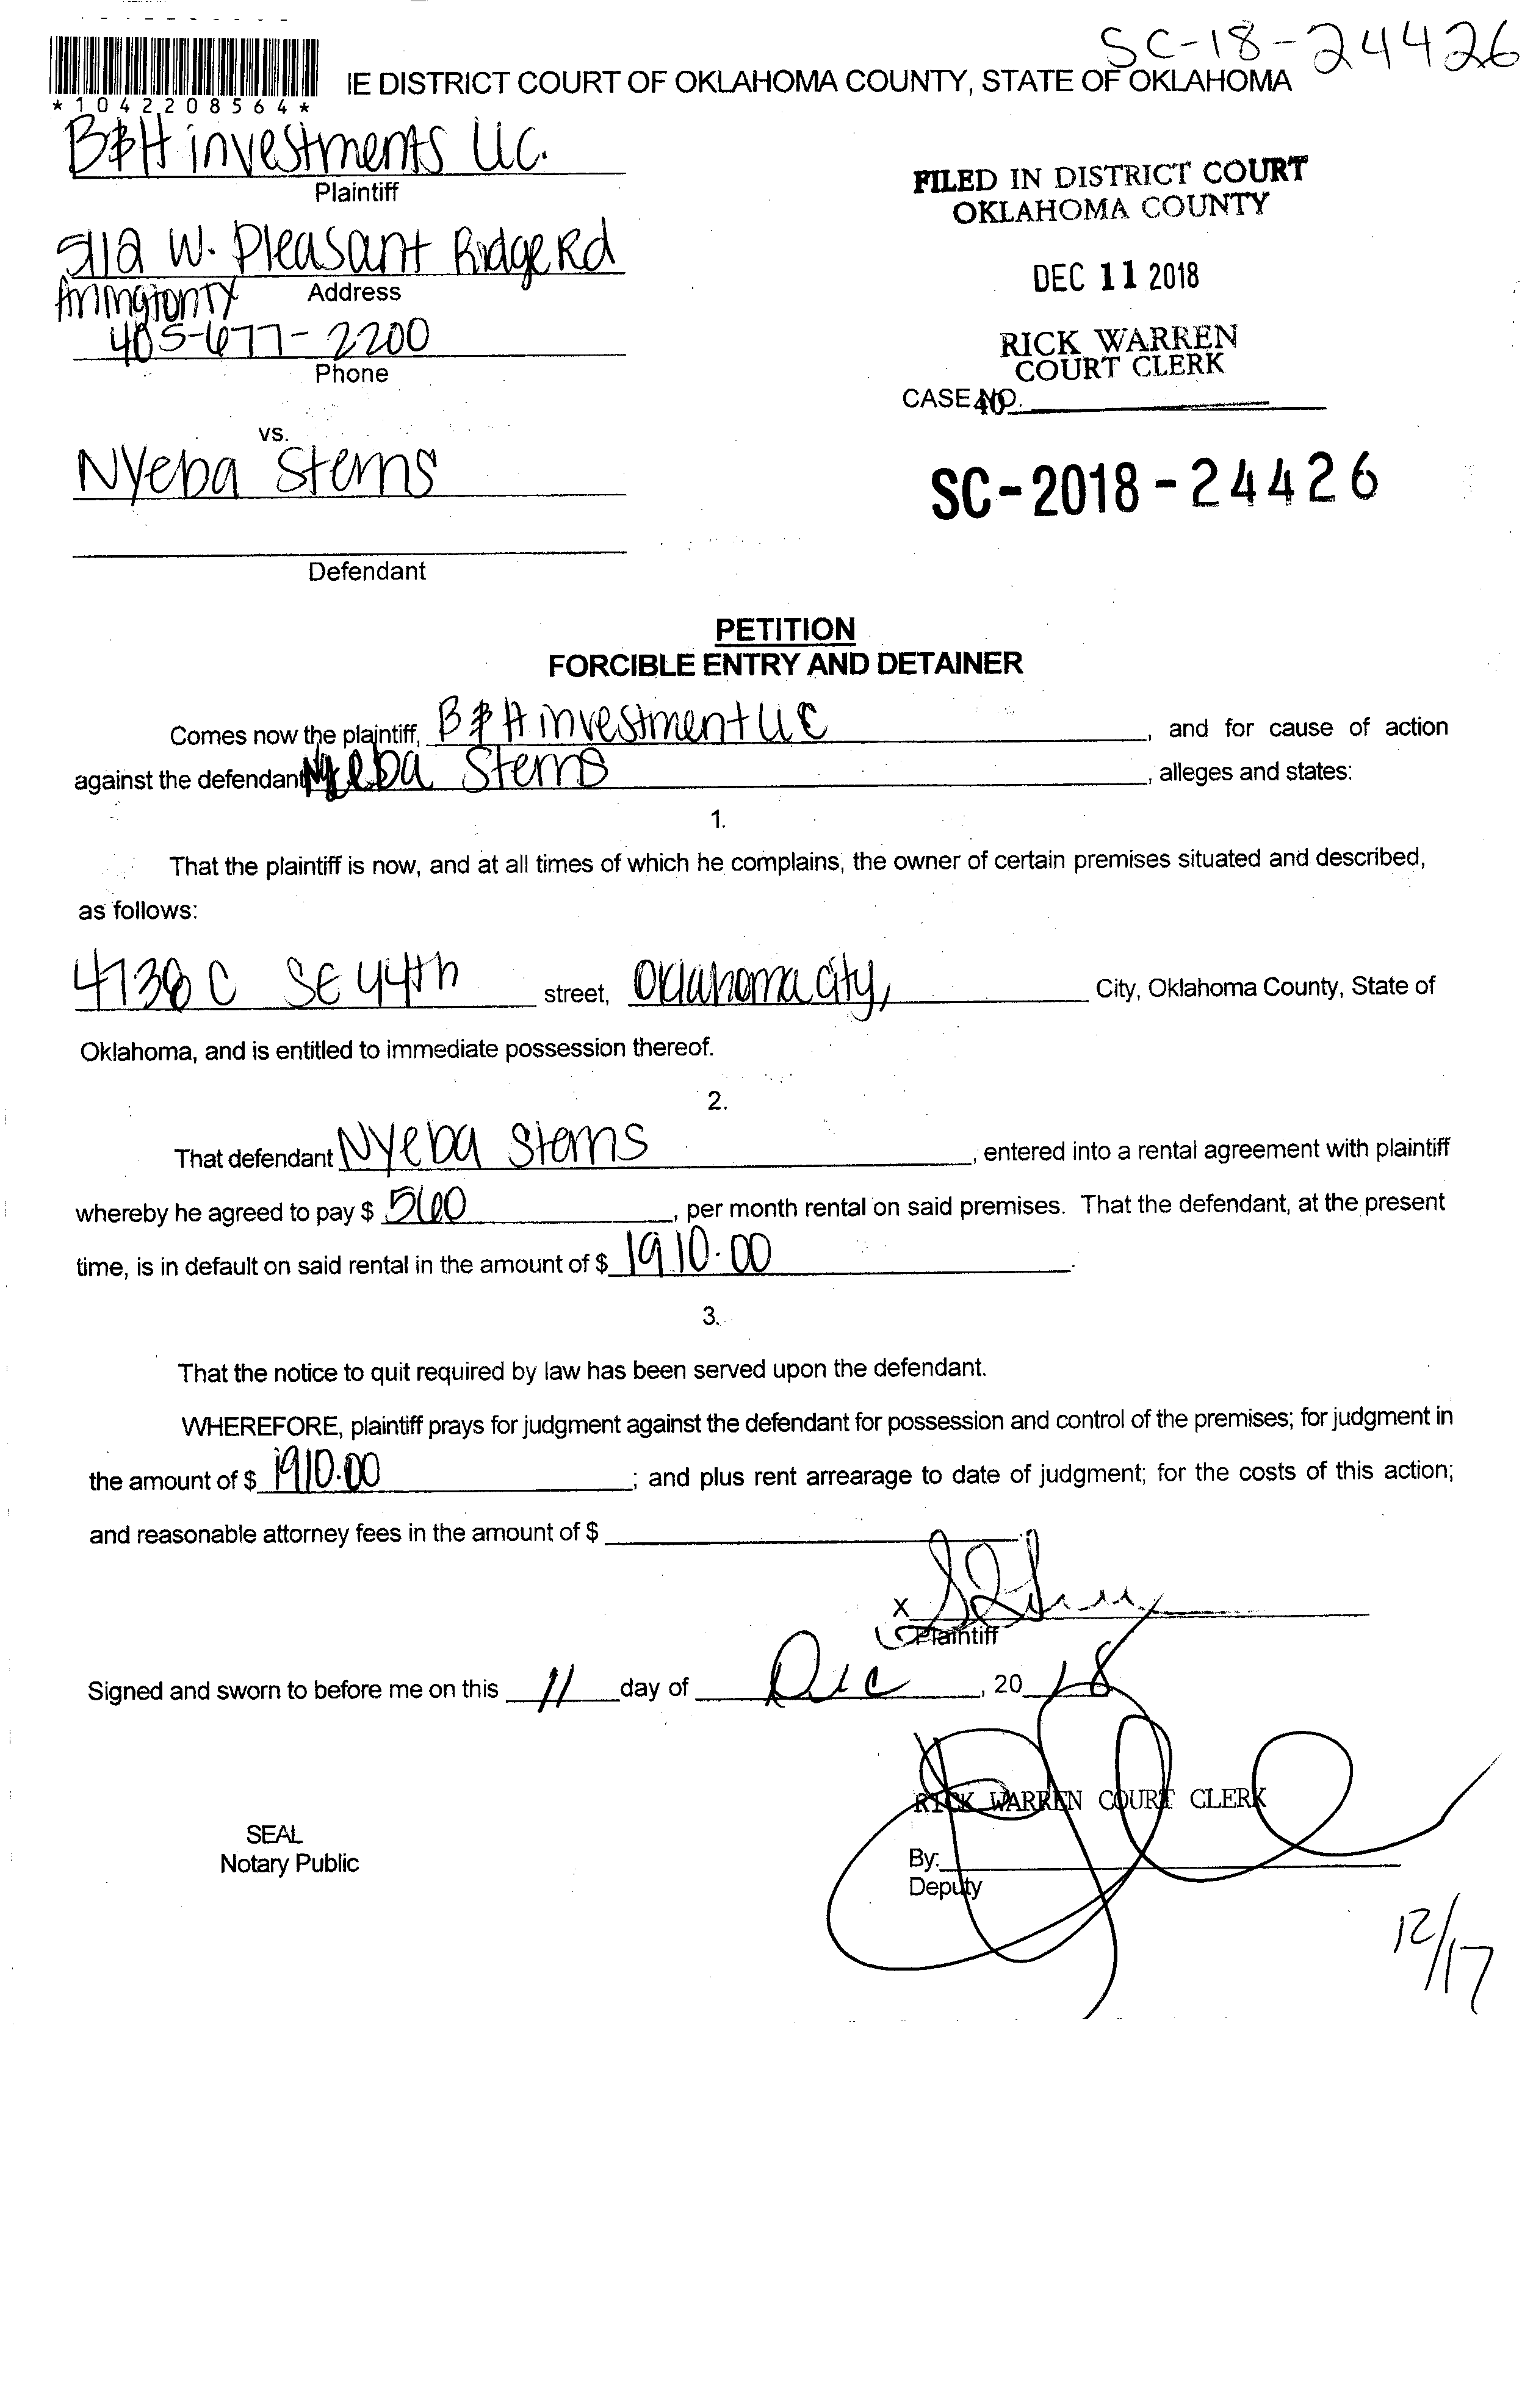 SC-18-24426
IE DISTRICT COURT OF OKLAHOMA COUNTY, STATE OF OKLAHOMA
*1042208564*
B&H investments LLC.
Plaintiff
FILED IN DISTRICT COURT
OKLAHOMA COUNTY
5112 W. Pleasant Ridge Rd
Arlington TX
Address
DEC 11 2018
405-677-2200
Phone
RICK WARREN
COURT CLERK
CASE NO.
40
vs.
Nyeba Sterns
SC-2018-24426
Defendant
PETITION
FORCIBLE ENTRY AND DETAINER
Comes now the plaintiff, B & H investment LLC, and for cause of action
against the defendant Nyeba Sterns, alleges and states:
1.
That the plaintiff is now, and at all times of which he complains, the owner of certain premises situated and described,
as follows:
4738 C SE 44th street, Oklahoma city, City, Oklahoma County, State of
Oklahoma, and is entitled to immediate possession thereof.
2.
That defendant Nyeba Sterns, entered into a rental agreement with plaintiff
whereby he agreed to pay $ 560, per month rental on said premises. That the defendant, at the present
time, is in default on said rental in the amount of $ 1910.00.
3.
That the notice to quit required by law has been served upon the defendant.
WHEREFORE, plaintiff prays for judgment against the defendant for possession and control of the premises; for judgment in
the amount of $ 1910.00; and plus rent arrearage to date of judgment; for the costs of this action;
and reasonable attorney fees in the amount of $
X
Plaintiff
Signed and sworn to before me on this 11 day of Dec, 20 18
RICK WARREN COURT CLERK
SEAL
Notary Public
By:
Deputy
12/17